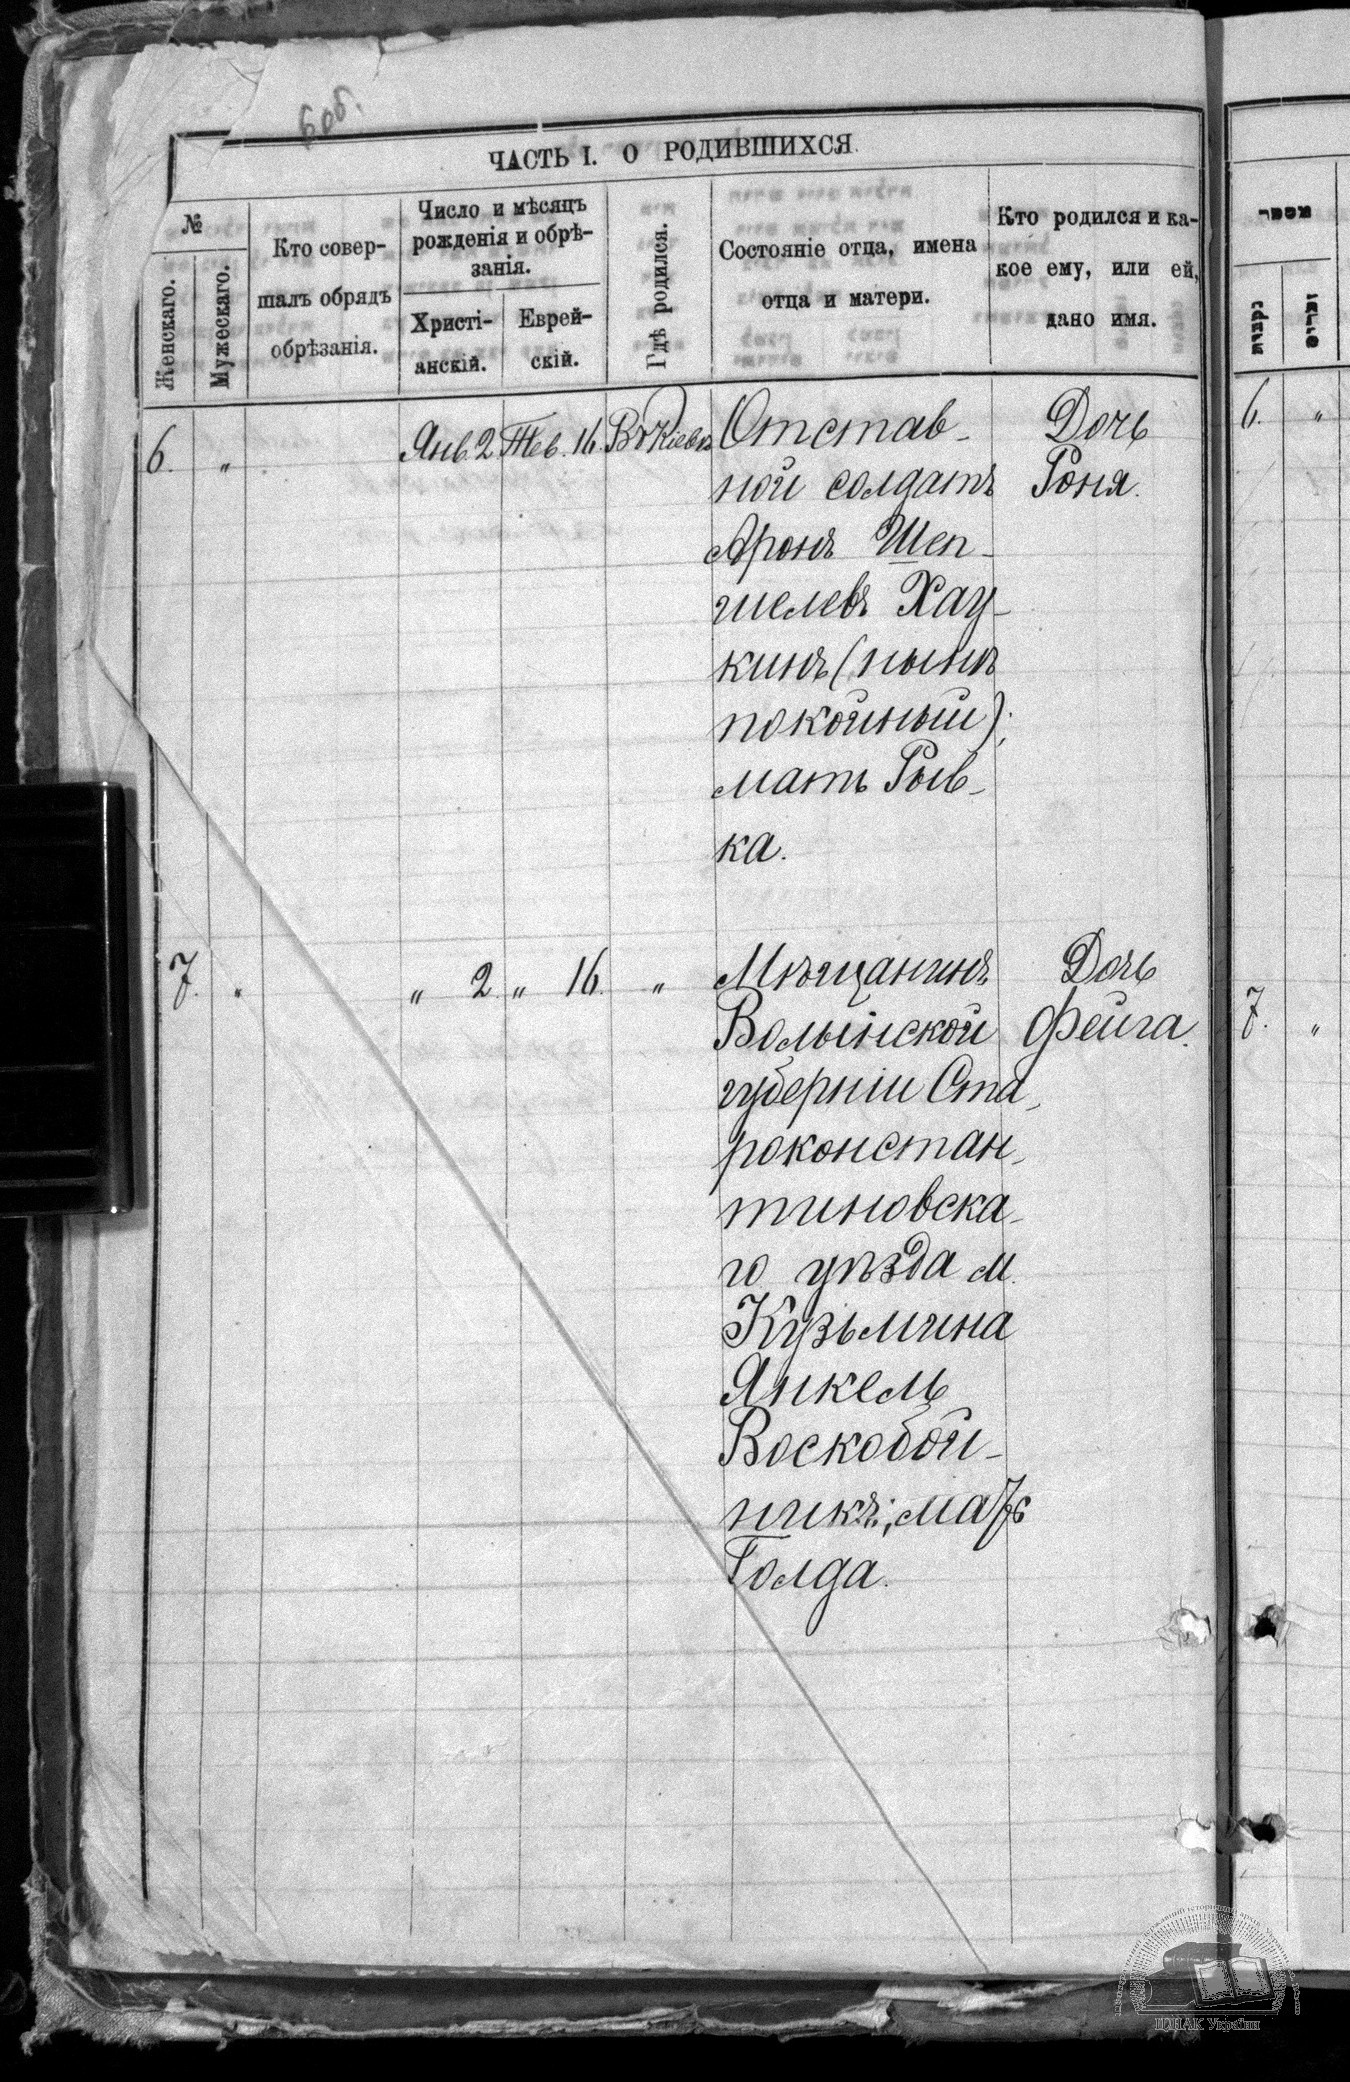 6об.
ЧАСТЬ I. О РОДИВШИХСЯ.
№
Женскаго.
Мужескаго.
Кто совер-
шалъ обрядъ
обрѣзанія.
Число и мѣсяцъ
рожденія и обрѣ-
занія.
Христі-
анскій.
Еврей-
скій.
Гдѣ родился.
Состояніе отца, имена
отца и матери.
Кто родился и ка-
кое ему, или ей,
дано имя.
מספר
נקבות
6. „ Янв. 2 Тев. 16. Въ Кіевѣ Отстав- Дочь
ной солдатъ Роня.
Аронъ Шеп-
шелевъ Хау-
кинъ (нынѣ
покойный);
мать Рыв-
ка.
7. „ „ 2. „ 16. „ Мѣщанинъ Дочь
Волынской Фейга.
губерніи Ста-
роконстан-
тиновска-
го уѣзда м.
Кузьмина
Янкель
Воскобой-
никъ; мать
Голда.
6. „
7. „
ЦДІАК України